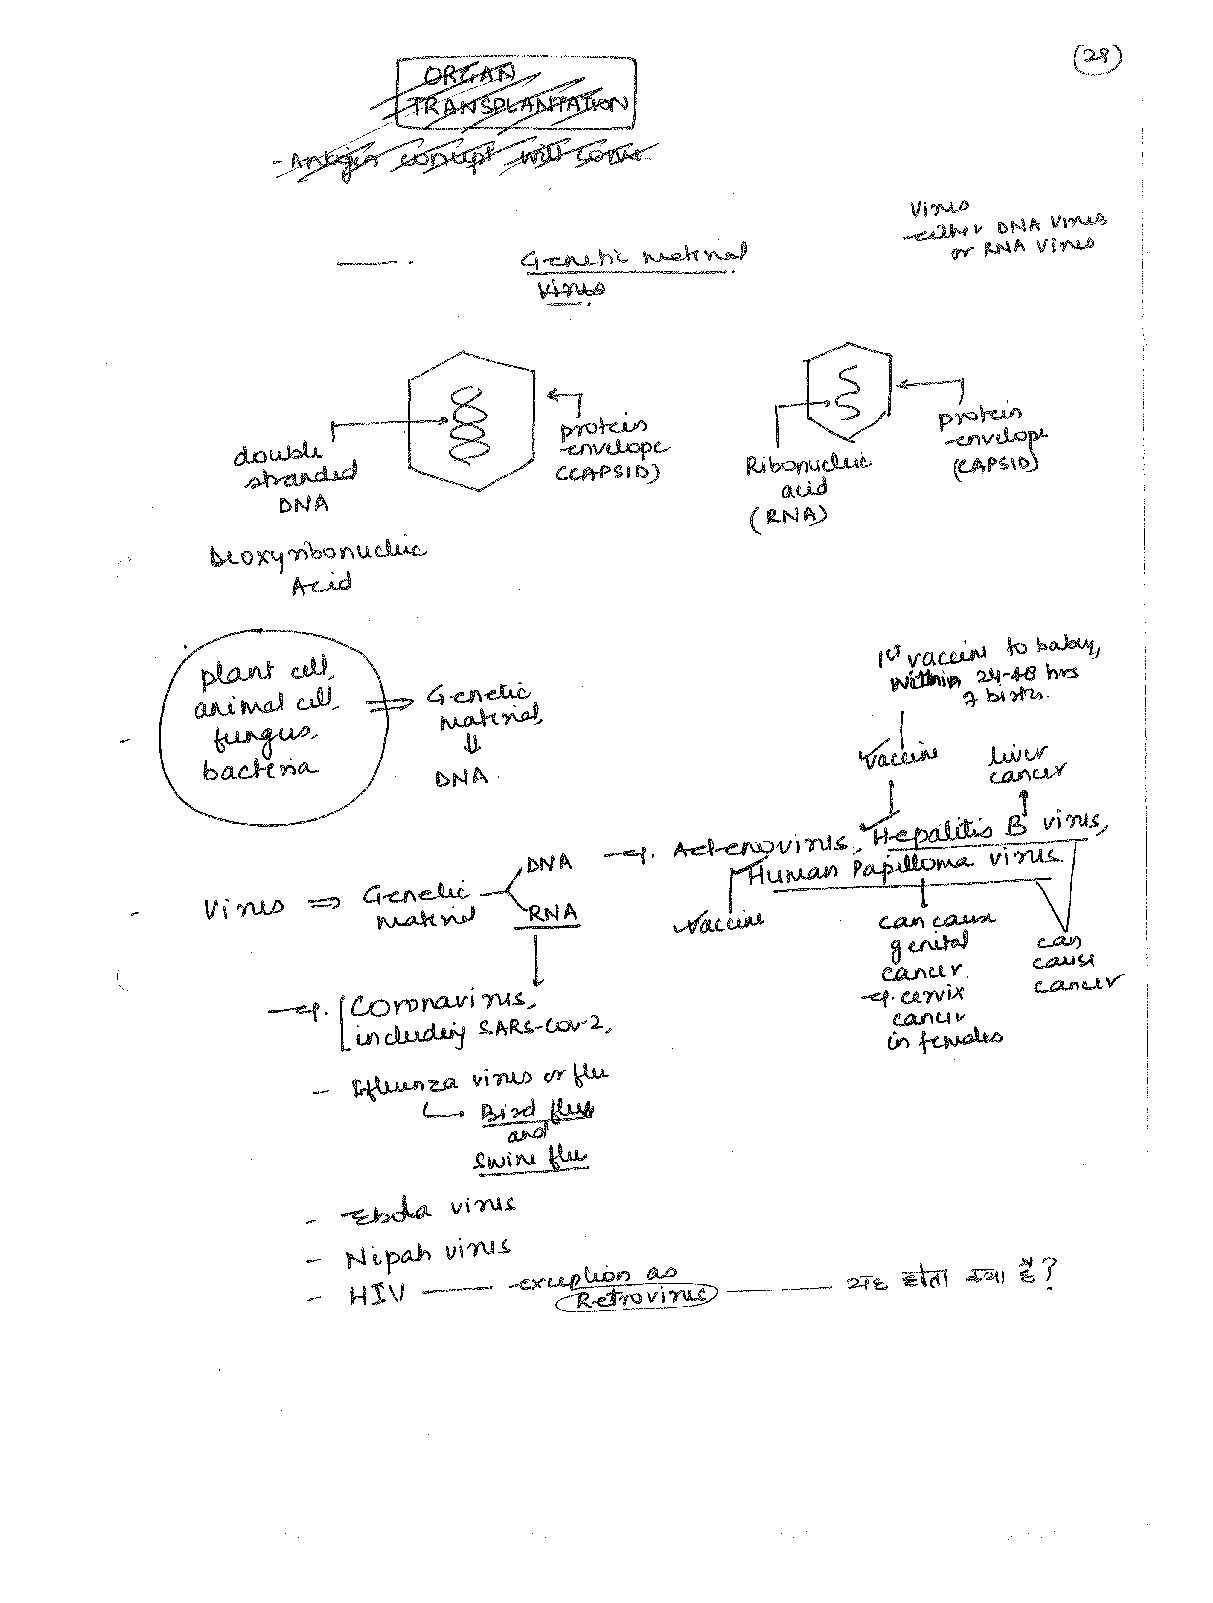 (28)
ORGAN
TRANSPLANTATION
- Antigen concept will come
Virus
either DNA virus
or RNA virus
Genetic material
Virus
double
stranded
DNA
protein
envelope
(CAPSID)
Ribonucleic
acid
(RNA)
protein
envelope
(CAPSID)
Deoxyribonucleic
Acid
plant cell,
animal cell,
fungus,
bacteria
⇒ Genetic
material,
⇓
DNA
1st vaccine to baby,
within 24-48 hrs
of birth.
Vaccine
liver
cancer
- Virus ⇒ Genetic
material
DNA
RNA
eg. Adenovirus, Hepatitis B virus,
Human Papilloma virus
Vaccine
can cause
genital
cancer
eg. cervix
cancer
in females
can
cause
cancer
eg. Coronavirus,
including SARS-Cov-2,
- Influenza virus or flu
Bird flu
and
Swine flu
- Ebola virus
- Nipah virus
- HIV — exception as
Retrovirus — यह होता क्या है?